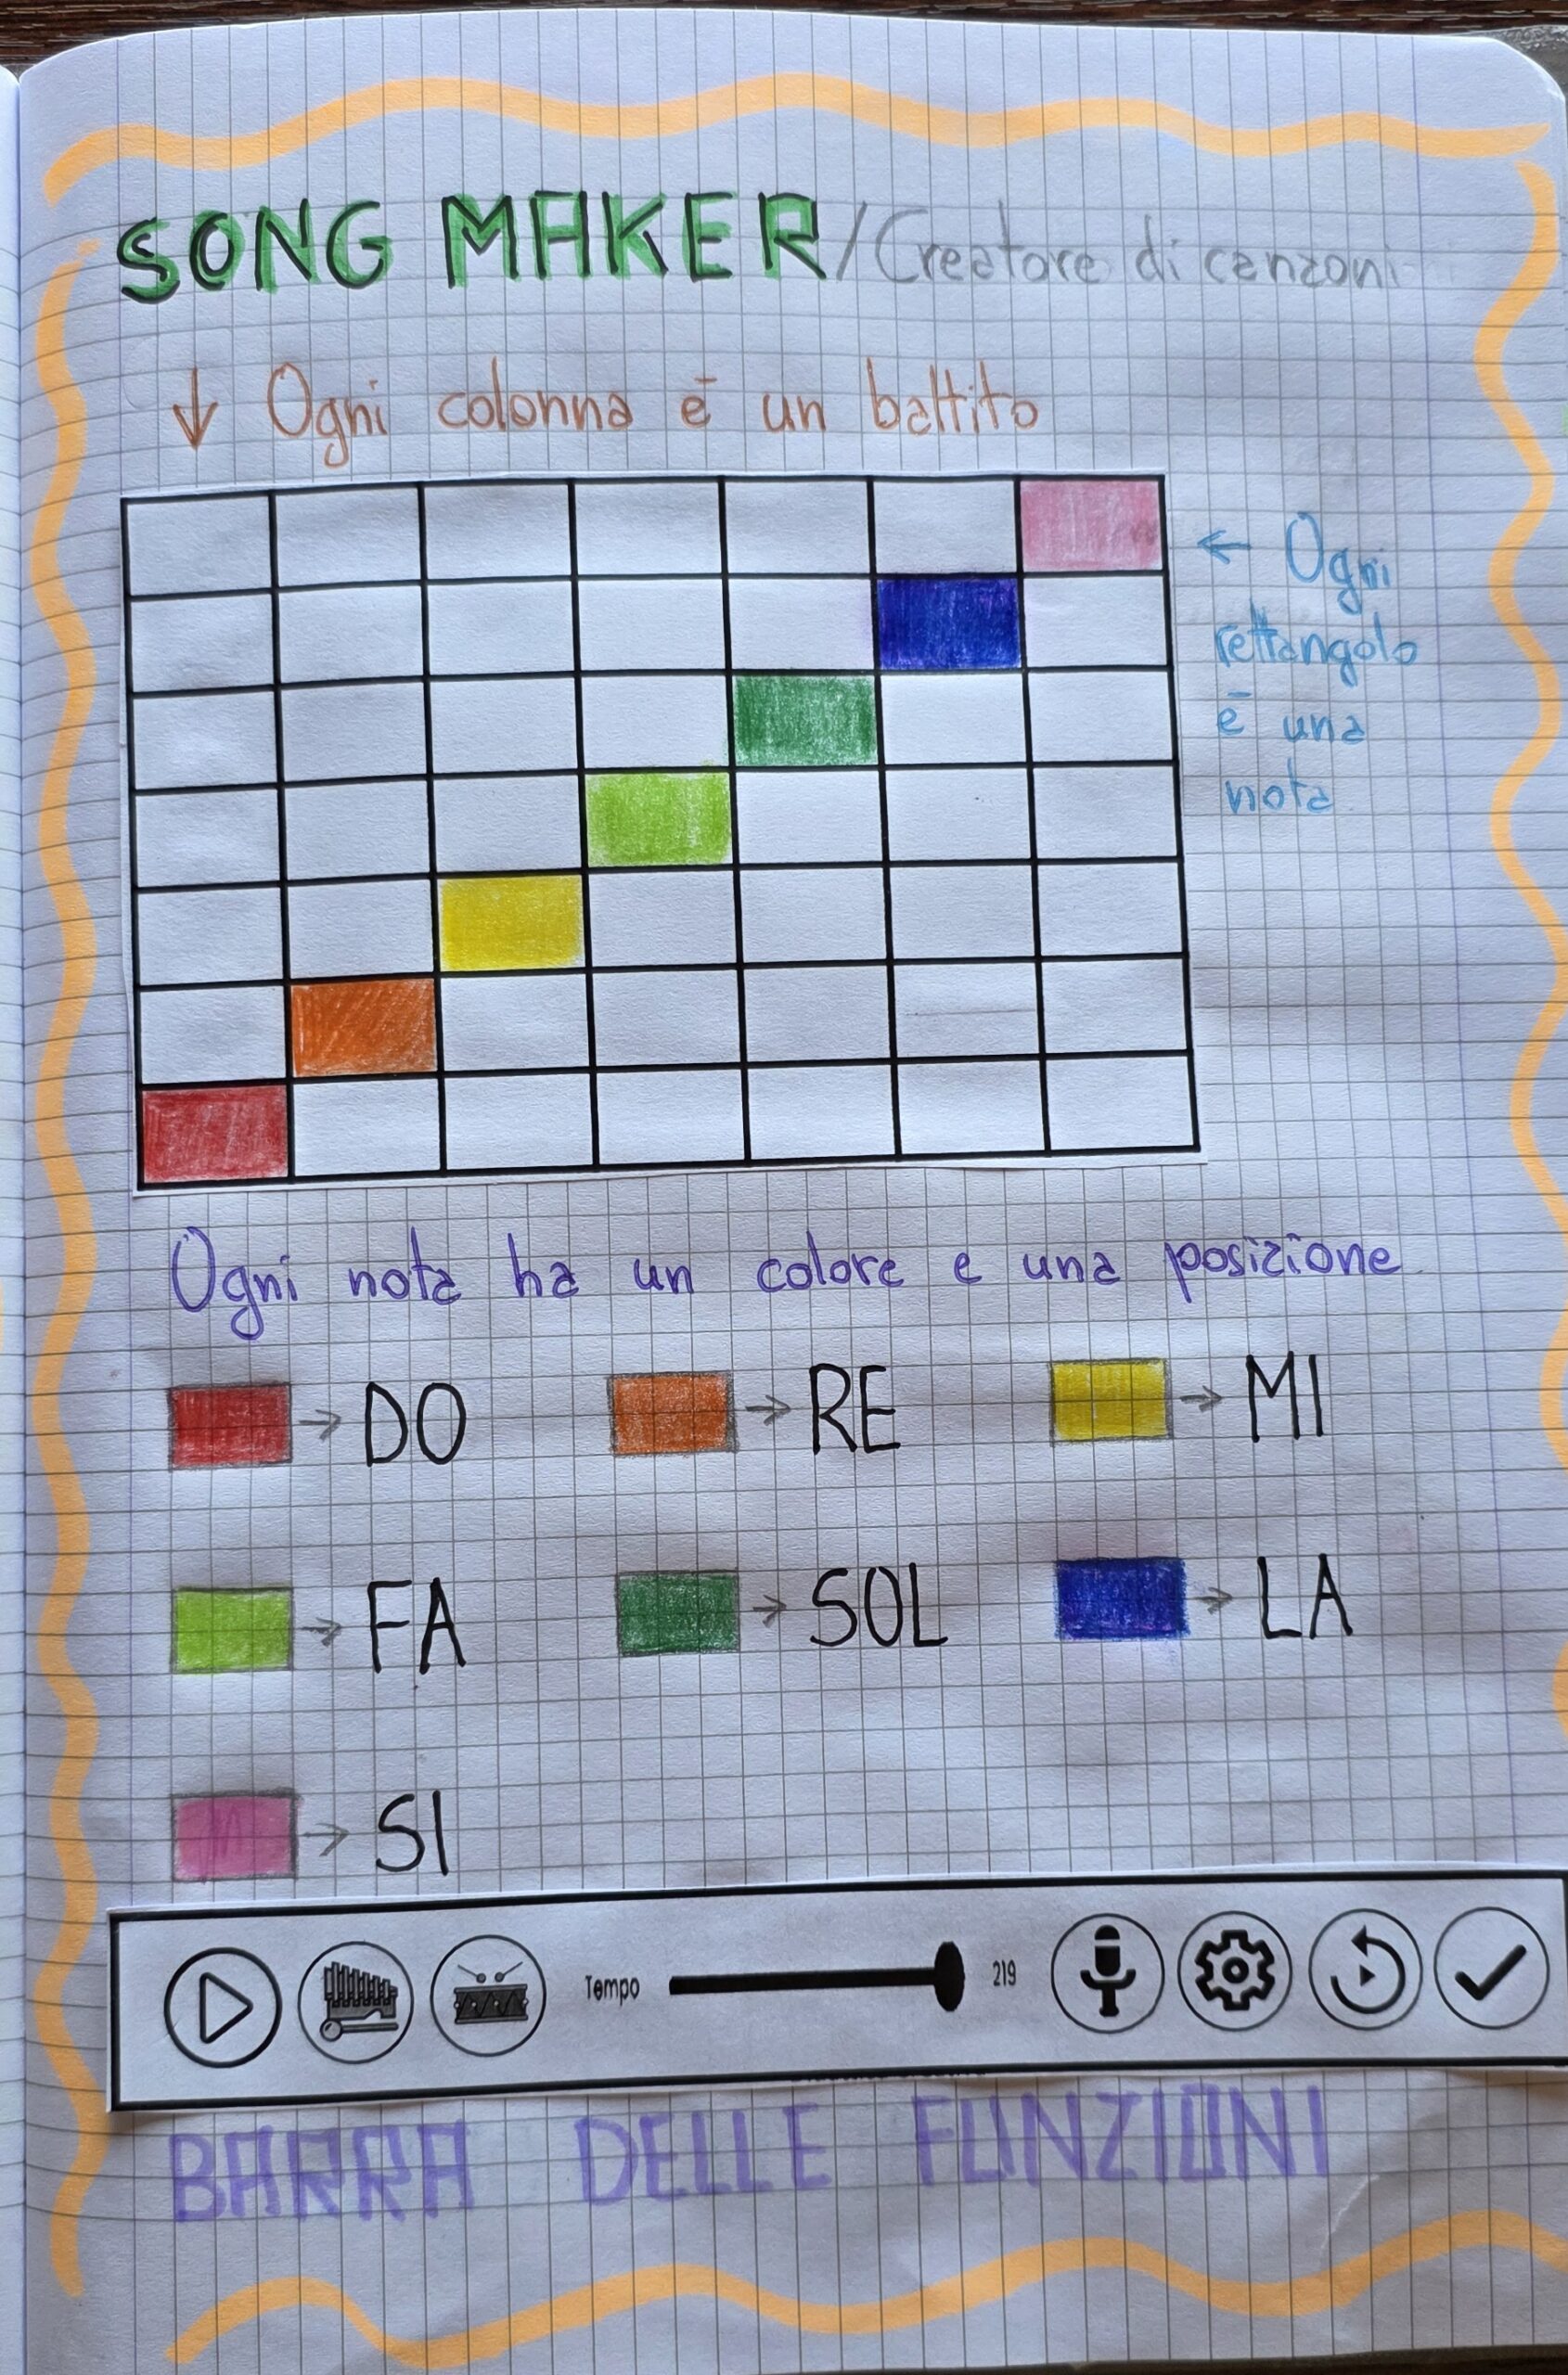 SONG MAKER/Creatore di canzoni
↓ Ogni colonna ē un battito
← Ogni
rettangolo
ē una
nota
Ogni nota ha un colore e una posizione
→ DO → RE → MI
→ FA → SOL → LA
→ SI
Tempo 219
BARRA DELLE FUNZIONI